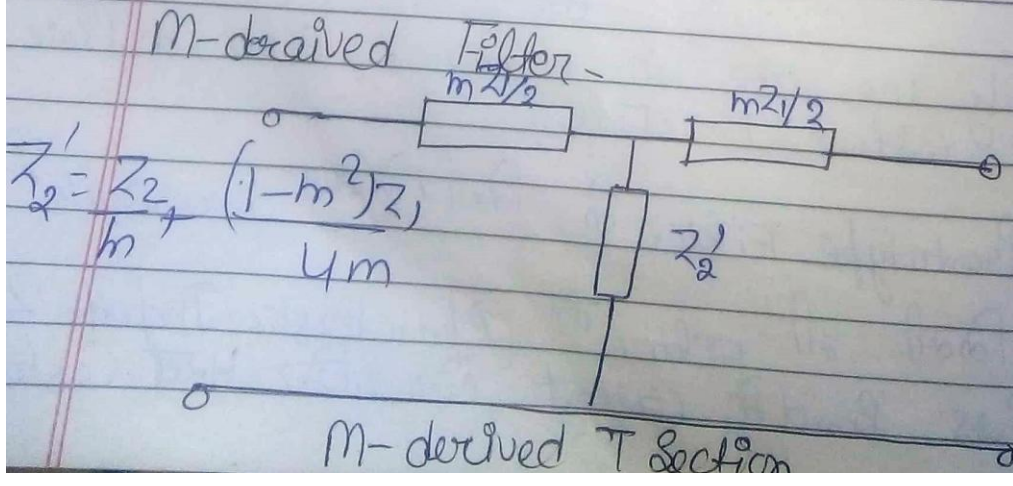 M-deraived Filter-
mZ1/2
mZ1/2
Z2' = Z2/m + (1-m²)Z1/4m
Z2'
M-derived T Section